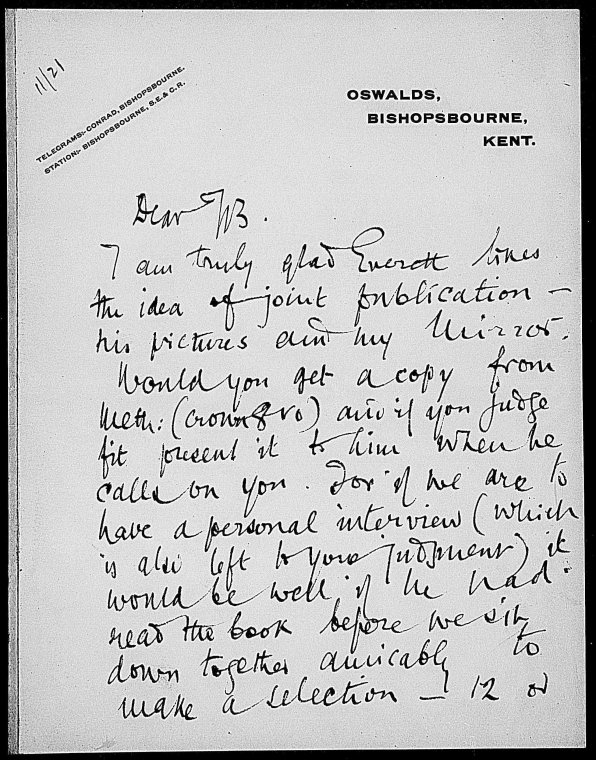 11/21
TELEGRAMS:- CONRAD, BISHOPSBOURNE.
STATION:- BISHOPSBOURNE, S.E. & C.R.
OSWALDS,
BISHOPSBOURNE,
KENT.
Dear JB.
I am truly glad Everett likes
the idea of joint publication —
his pictures and my Mirror.
Would you get a copy from
Meth: (crown 8vo) and if you judge
fit present it to him when he
calls on you. For if we are to
have a personal interview (which
is also left to your judgment) it
would be well if he had
read the book before we sit
down together amicably to
make a selection — 12 or